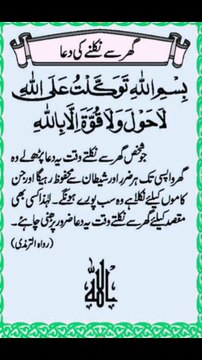 گھر سے نکلنے کی دعا
بِسْمِ اللّٰهِ تَوَكَّلْتُ عَلَى اللّٰهِ
لَا حَوْلَ وَلَا قُوَّةَ اِلَّا بِاللّٰهِ
جو شخص گھر سے نکلتے وقت یہ دعا پڑھ لے وہ
گھر واپسی تک ہر ضرر اور شیطان سے محفوظ رہیگا اور جن
کاموں کیلئے نکلا ہے وہ سب پورے ہونگے۔ لہٰذا کسی بھی
مقصد کیلئے گھر سے نکلتے وقت یہ دعا ضرور پڑھنی چاہئے۔
(رواہ الترمذی)